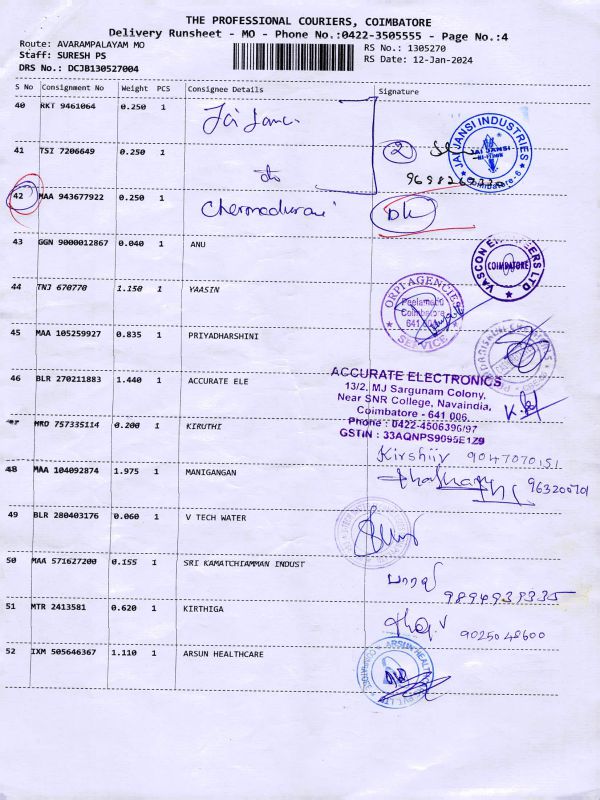 THE PROFESSIONAL COURIERS, COIMBATORE
Delivery Runsheet - MO - Phone No.:0422-3505555 - Page No.:4
Route: AVARAMPALAYAM MO
RS No.: 1305270
Staff: SURESH PS
RS Date: 12-Jan-2024
DRS No.: DCJB130527004
S No Consignment No Weight PCS Consignee Details Signature
40 RKT 9461064 0.250 1 Jai Jansi
JAI JANSI INDUSTRIES
JAI JANSI
HI-FIINK
Coimbatore - 6
41 TSI 7206649 0.250 1 do 2
42 MAA 943677922 0.250 1
43 GGN 9000012867 0.040 1 ANU
VASCON ENGINEERS LTD
COIMBATORE
44 TNJ 670770 1.150 1 YAASIN
ORPI AGENCIES
Peelamedu
Coimbatore
641 004
SERVICE
45 MAA 105259927 0.835 1 PRIYADHARSHINI
46 BLR 270211883 1.440 1 ACCURATE ELE
ACCURATE ELECTRONICS
13/2, MJ Sargunam Colony,
Near SNR College, Navaindia,
Coimbatore - 641 006.
Phone : 0422-4506396/97
GSTIN : 33AQNPS9095E1Z9
47 MRD 757335114 0.200 1 KIRUTHI
Kirshiv 9047070151
48 MAA 104092874 1.975 1 MANIGANGAN
49 BLR 280403176 0.060 1 V TECH WATER
50 MAA 571627200 0.155 1 SRI KAMATCHIAMMAN INDUST
9894939335
51 MTR 2413581 0.620 1 KIRTHIGA
9025048600
52 IXM 505646367 1.110 1 ARSUN HEALTHCARE